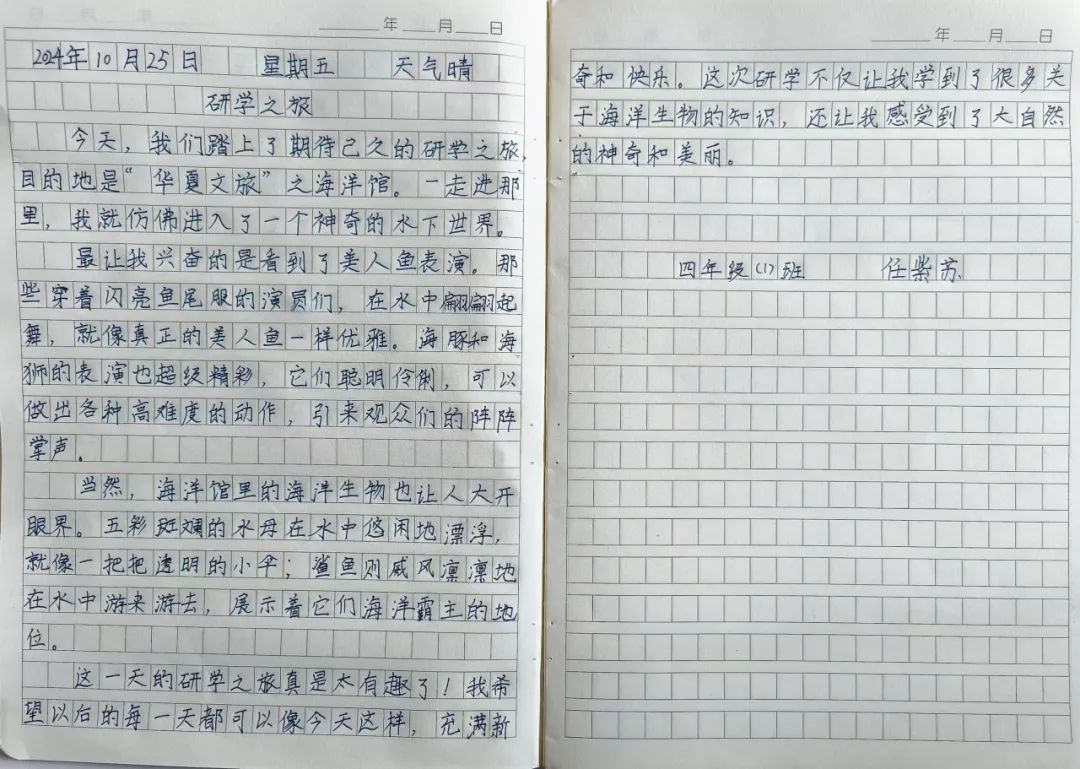 年 月 日
2024年10月25日 星期五 天气晴
研学之旅
今天，我们踏上了期待已久的研学之旅，
目的地是“华夏文旅”之海洋馆。一走进那
里，我就仿佛进入了一个神奇的水下世界。
最让我兴奋的是看到了美人鱼表演。那
些穿着闪亮鱼尾服的演员们，在水中翩翩起
舞，就像真正的美人鱼一样优雅。海豚和海
狮的表演也超级精彩，它们聪明伶俐，可以
做出各种高难度的动作，引来观众们的阵阵
掌声。
当然，海洋馆里的海洋生物也让人大开
眼界。五彩斑斓的水母在水中悠闲地漂浮，
就像一把把透明的小伞；鲨鱼则威风凛凛地
在水中游来游去，展示着它们海洋霸主的地
位。
这一天的研学之旅真是太有趣了！我希
望以后的每一天都可以像今天这样，充满新
年 月 日
奇和快乐。这次研学不仅让我学到了很多关
于海洋生物的知识，还让我感受到了大自然
的神奇和美丽。
四年级(1)班 任紫苏